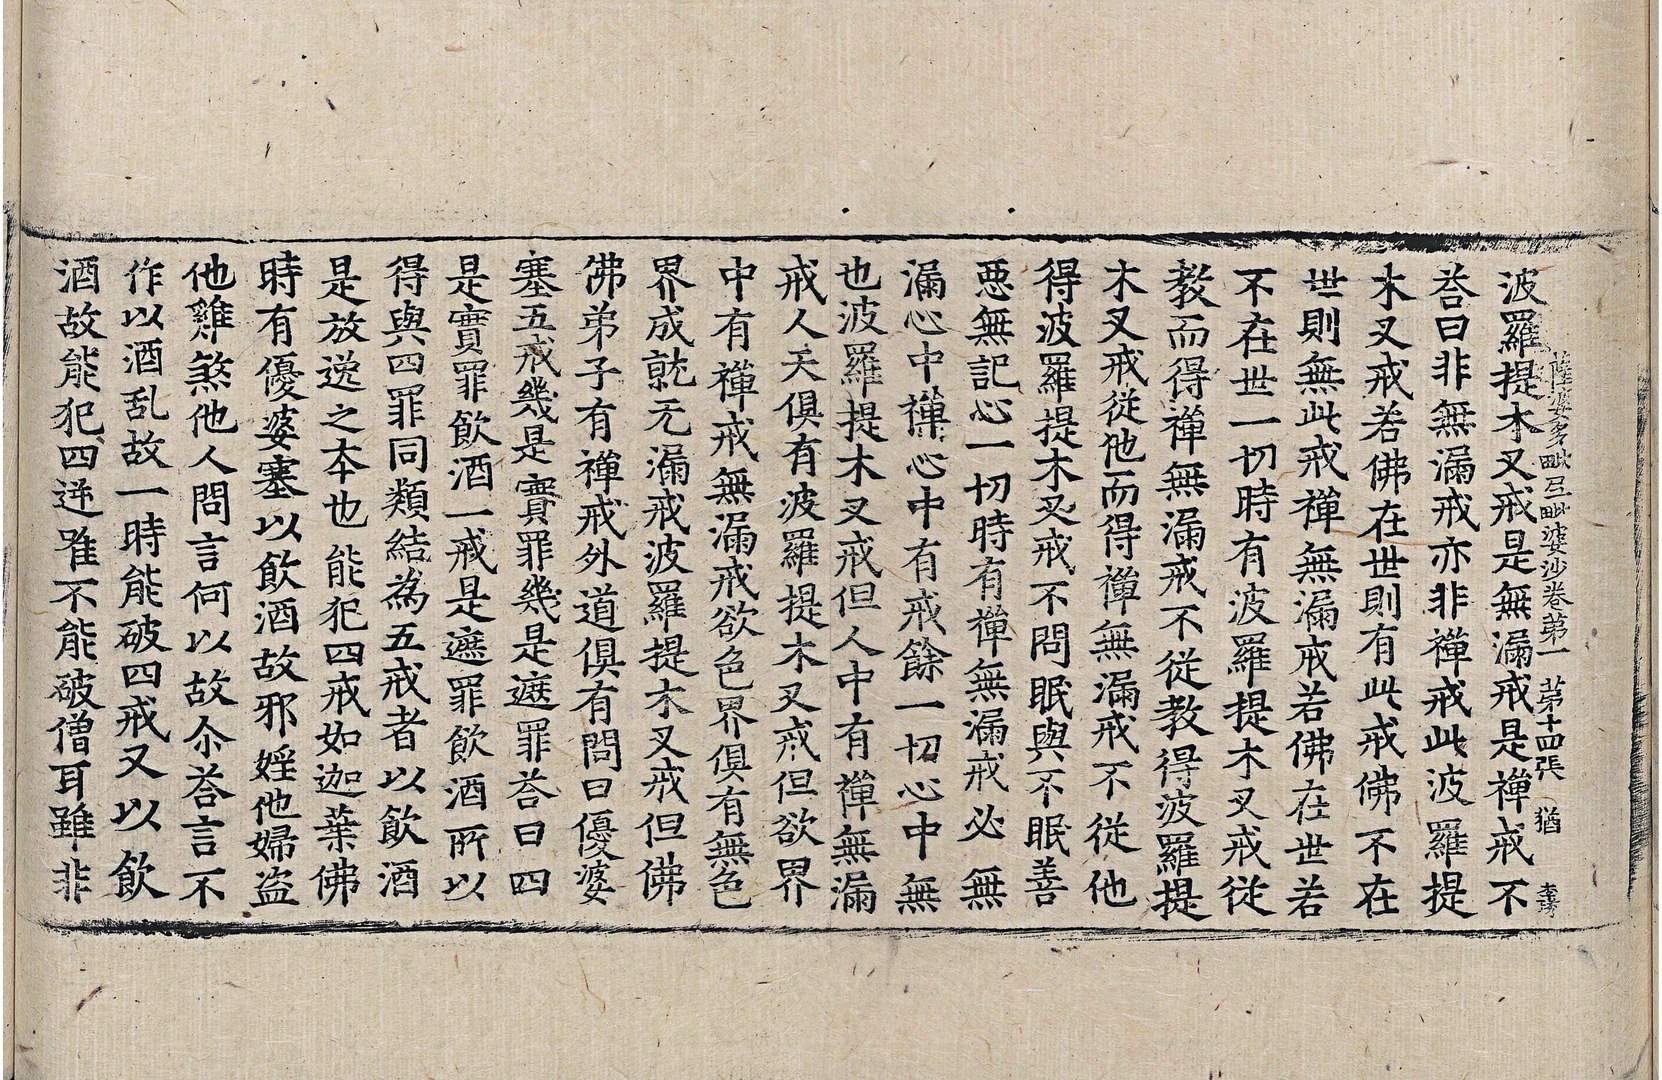 薩婆多毗尼毗婆沙卷第一 第十四張 猶
波羅提木叉戒是無漏戒是禪戒不
荅曰非無漏戒亦非禪戒此波羅提
木叉戒若佛在世則有此戒佛不在
世則無此戒禪無漏戒若佛在世若
不在世一切時有波羅提木叉戒從
教而得禪無漏戒不從教得波羅提
木叉戒從他而得禪無漏戒不從他
得波羅提木叉戒不問眠與不眠善
惡無記心一切時有禪無漏戒必無
漏心中禪心中有戒餘一切心中無
也波羅提木叉戒但人中有禪無漏
戒人天俱有波羅提木叉戒但欲界
中有禪戒無漏戒欲色界俱有無色
界成就无漏戒波羅提木叉戒但佛
佛弟子有禪戒外道俱有問曰優婆
塞五戒幾是實罪幾是遮罪荅曰四
是實罪飲酒一戒是遮罪飲酒所以
得與四罪同類結為五戒者以飲酒
是放逸之本也能犯四戒如迦葉佛
時有優婆塞以飲酒故邪婬他婦盜
他雞煞他人問言何以故尒荅言不
作以酒乱故一時能破四戒又以飲
酒故能犯四逆唯不能破僧耳雖非